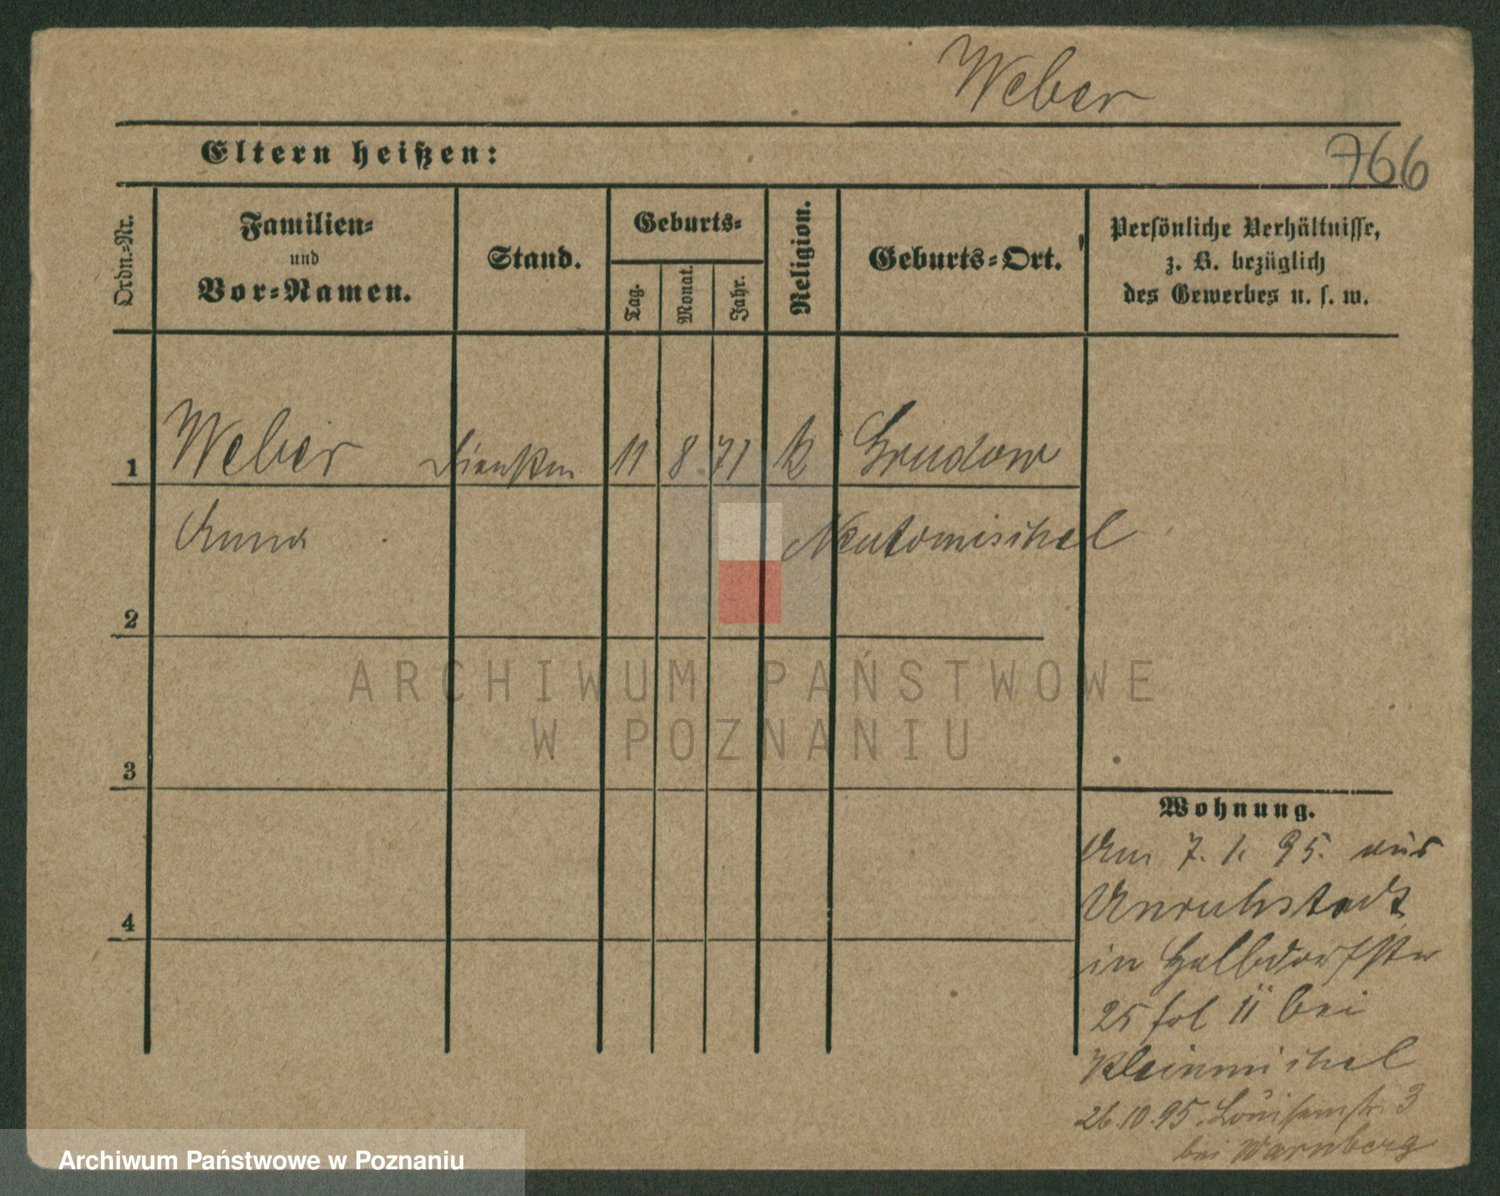 Weber
766
Eltern heißen:
Ordn.-Nr.
Familien-
und
Vor-Namen.
Stand.
Geburts-
Tag.
Monat.
Jahr.
Religion.
Geburts-Ort.
Persönliche Verhältnisse,
z. B. bezüglich
des Gewerbes u. s. w.
1 Weber 11 8. 71 k
Anna Neutomischel
2
3
4
Wohnung.
Am 7. 1. 95. aus
Unruhstadt
in Halbdorfstr
25 fol II bei
Kleinmichel
26.10.95. Louisenstr. 3
bei Warnberg
ARCHIWUM PAŃSTWOWE
W POZNANIU
Archiwum Państwowe w Poznaniu